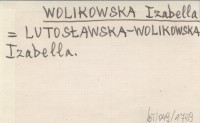 WOLIKOWSKA Izabella
= LUTOSŁAWSKA-WOLIKOWSKA
Izabella.